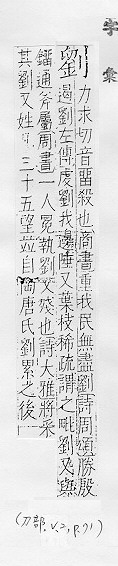 字彙
劉 力求切音畱殺也商書重我民無盡劉詩周頌勝殷
遏劉左傳虔劉我邊陲又葉枝稀疏謂之毗劉又與
鐂通斧屬周書一人冕執劉又殘也詩大雅將采
其劉又姓三十五望竝自陶唐氏劉累之後
(刀部, V.2, P.71)